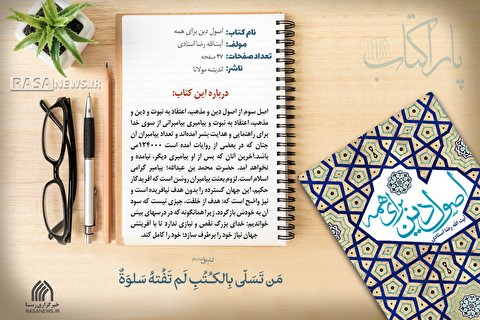 RASANEWS.IR
پاراکتاب
نام کتاب: اصول دین برای همه
مولف: آیت‌الله رضا استادی
تعداد صفحات: ۴۷ صفحه
ناشر: اندیشه مولانا
درباره این کتاب:
اصل سوم از اصول دین و مذهب، اعتقاد به نبوت و دین و
مذهب، اعتقاد به نبوت و پیامبری پیامبرانی از سوی خدا
برای راهنمایی و هدایت بشر آمده‌اند و تعداد پیامبران آن
چنان که در بعضی از روایات آمده است ۱۲۴۰۰۰ می
باشد.آخرین آنان که پس از او پیامبری دیگر، نیامده و
نخواهد آمد، حضرت محمد بن عبدالله؛ پیامبر گرامی
اسلام است. لزوم بعثت پیامبران روشن است که آفریدگار
حکیم، این جهان گسترده را بدون هدف نیافریده است و
نیز واضح است که: هدف از خلقت، چیزی نیست که سود
آن به خودش بازگردد، زیرا همانگونه که در درسهای پیش
خواندیم: خدای بزرگ نقص و نیازی ندارد تا با آفرینش
جهان نیاز خود را برطرف سازد؛ خود را کامل کند.
اصول دین
برای همه
آیت الله رضا استادی
مَن تَسَلّی بِالکُتُبِ لَم تَفُتهُ سَلوَةٌ
خبرگزاری رسا
RASANEWS.IR